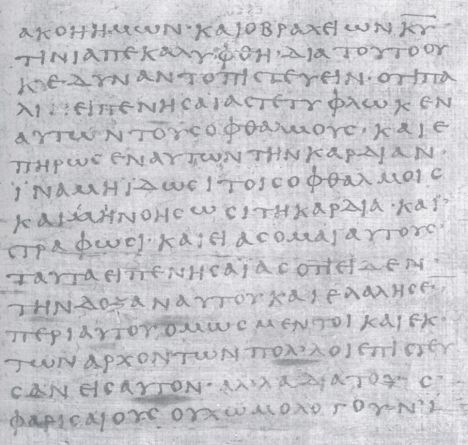 ΑΚΟΗΗΜΩΝ·ΚΑΙΟΒΡΑΧΕΙΩΝΚ̅Υ̅
ΤΙΝΙΑΠΕΚΑΛΥΦΘΗ·ΔΙΑΤΟΥΤΟΟΥ
ΚΕΔΥΝΑΝΤΟΠΙϹΤΕΥΕΙΝ·ΟΤΙΠΑ
ΛΙ ΕΙΠΕΝΗϹΑΙΑϹΤΕΤΥΦΛΩΚΕΝ
ΑΥΤΩΝΤΟΥϹΟΦΘΑΛΜΟΥϹ·ΚΑΙΕ
ΠΗΡΩϹΕΝΑΥΤΩΝΤΗΝΚΑΡΔΙΑΝ·
ΪΝΑΜΗΪΔΩϹΙΤΟΙϹΟΦΘΑΛΜΟΙϹ
ΚΑΙΜΗΝΟΗϹΩϹΙΤΗΚΑΡΔΙΑ·ΚΑΙ
ϹΤΡΑΦΩϹΙ·ΚΑΙΕΙΑϹΟΜΑΙΑΥΤΟΥϹ·
ΤΑΥΤΑΕΙΠΕΝΗϹΑΙΑϹΟΤΙΕΙΔΕΝ
ΤΗΝΔΟΞΑΝΑΥΤΟΥ·ΚΑΙΕΛΑΛΗϹΕ
ΠΕΡΙΑΥΤΟΥ·ΟΜΩϹΜΕΝΤΟΙΚΑΙΕΚ
ΤΩΝΑΡΧΟΝΤΩΝΠΟΛΛΟΙΕΠΙϹΤΕΥ
ϹΑΝΕΙϹΑΥΤΟΝ·ΑΛΛΑΔΙΑΤΟΥϹ
ΦΑΡΙϹΑΙΟΥϹΟΥΧΩΜΟΛΟΓΟΥΝΙ